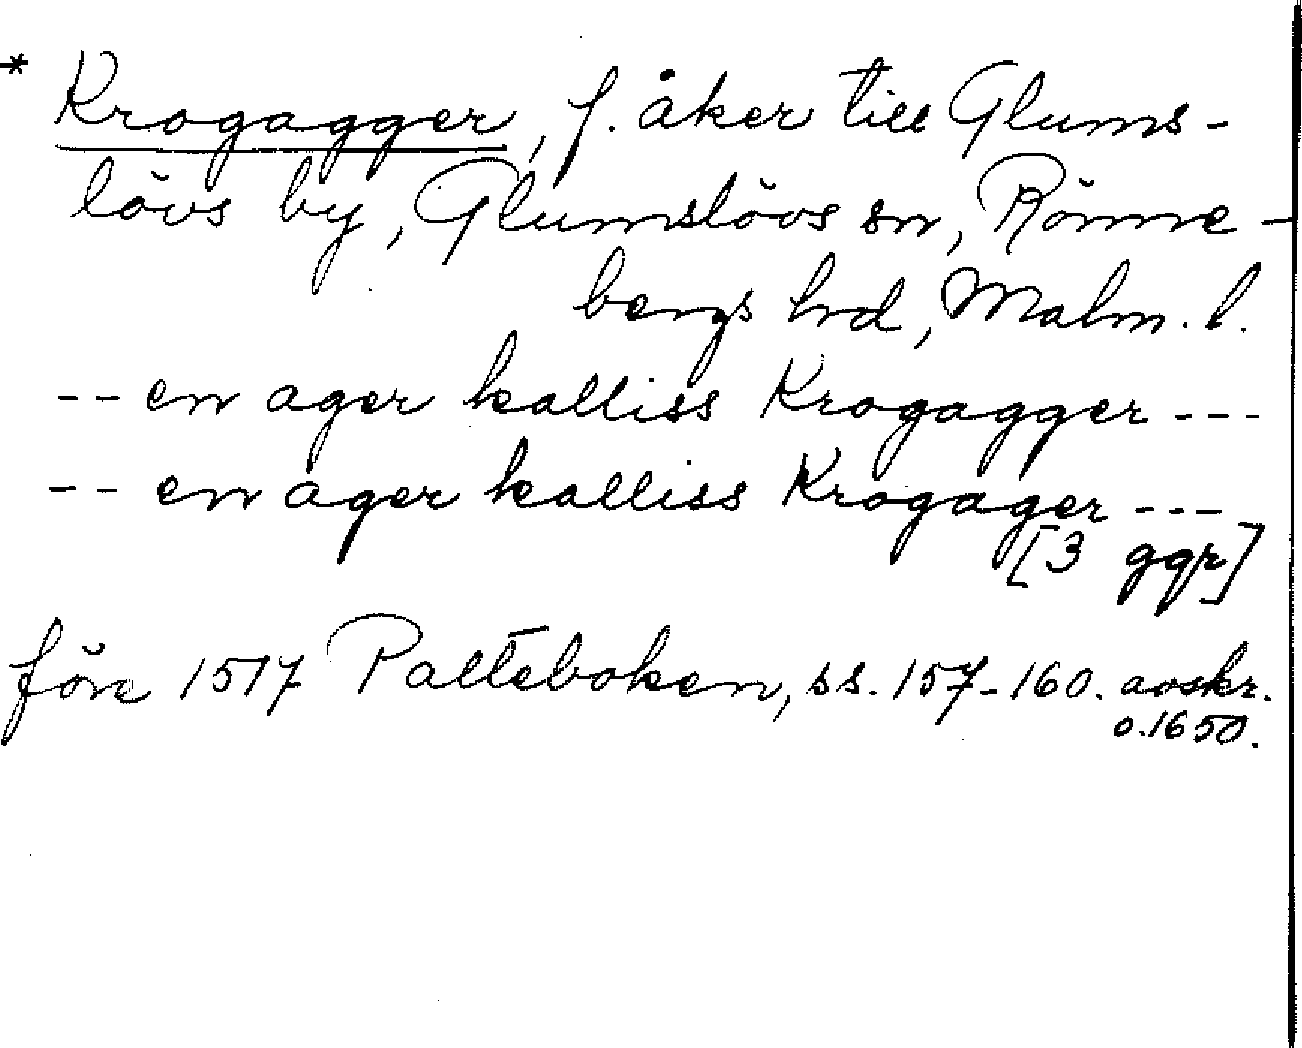 * Krogagger, f. åker till Glums-
lövs by, Glumslövs sn, Rönne-
bergs hrd, Malm. l.
-- en ager kalliss Krogagger ---
-- en ager kalliss Krogager ---
[3 ggr]
före 1517 Palteboken, ss. 157-160. avskr.
o. 1650.